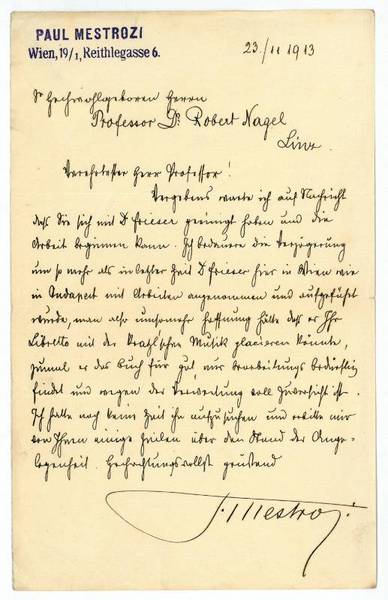 PAUL MESTROZI
Wien, 19/1, Reithlegasse 6.
23/11 1913
Sr Hochwohlgeboren Herrn
Professor Dr Robert Nagel
Linz.
Verehrtester Herr Professor!
Vergebens warte ich auf Nachricht
daß Sie sich mit Dr Frieser geeinigt haben und die
Arbeit beginnen kann. Ich bedauere die Verzögerung
um so mehr als in letzter Zeit Dr Frieser hier in Wien wie
in Budapest mit Arbeiten angenommen und aufgeführt
wurde, man also umsomehr Hoffnung hätte daß er Ihr
Libretto mit der Musik placieren könnte,
zumal er das Buch für gut nur bearbeitungs bedürftig
findet und wegen der Verwertung voll Zuversicht ist.
Ich hatte noch keine Zeit ihn aufzusuchen und erbitte mir
von Ihnen einige Zeilen über den Stand der Ange-
legenheit. Hochachtungsvollst grüßend
P. Mestrozi